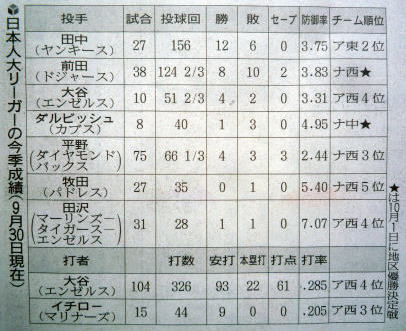 日本人大リーガーの今季成績(9月30日現在)
投手 試合 投球回 勝 敗 セーブ 防御率 チーム順位
田中(ヤンキース) 27 156 12 6 0 3.75 ア東2位
前田(ドジャース) 38 124 2/3 8 10 2 3.83 ナ西★
大谷(エンゼルス) 10 51 2/3 4 2 0 3.31 ア西4位
ダルビッシュ(カブス) 8 40 1 3 0 4.95 ナ中★
平野(ダイヤモンドバックス) 75 66 1/3 4 3 3 2.44 ナ西3位
牧田(パドレス) 27 35 0 1 0 5.40 ナ西5位
田沢(マーリンズ―タイガース―エンゼルス) 31 28 1 1 0 7.07 ア西4位
打者 試合 打数 安打 本塁打 打点 打率
大谷(エンゼルス) 104 326 93 22 61 .285 ア西4位
イチロー(マリナーズ) 15 44 9 0 0 .205 ア西3位
★は10月1日に地区優勝決定戦